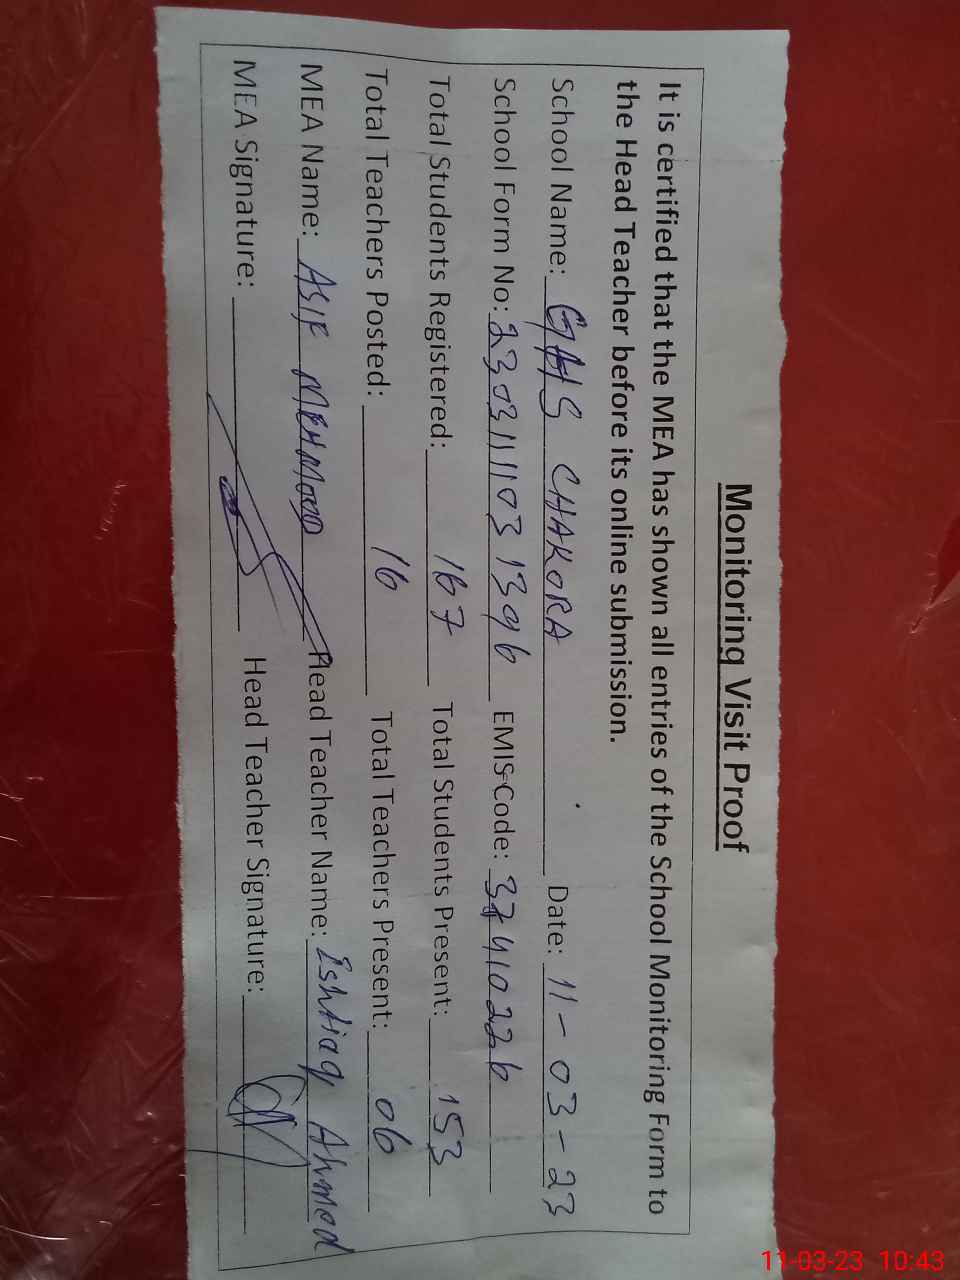 Monitoring Visit Proof
It is certified that the MEA has shown all entries of the School Monitoring Form to
the Head Teacher before its online submission.
School Name: GHS CHAKORA Date: 11-03-23
School Form No: 230311103 1396 EMIS Code: 37410226
Total Students Registered: 167 Total Students Present: 153
Total Teachers Posted: 16 Total Teachers Present: 06
MEA Name: ASIF MEHMOOD Head Teacher Name: Ishtiaq Ahmed
MEA Signature: Head Teacher Signature:
11-03-23 10:43